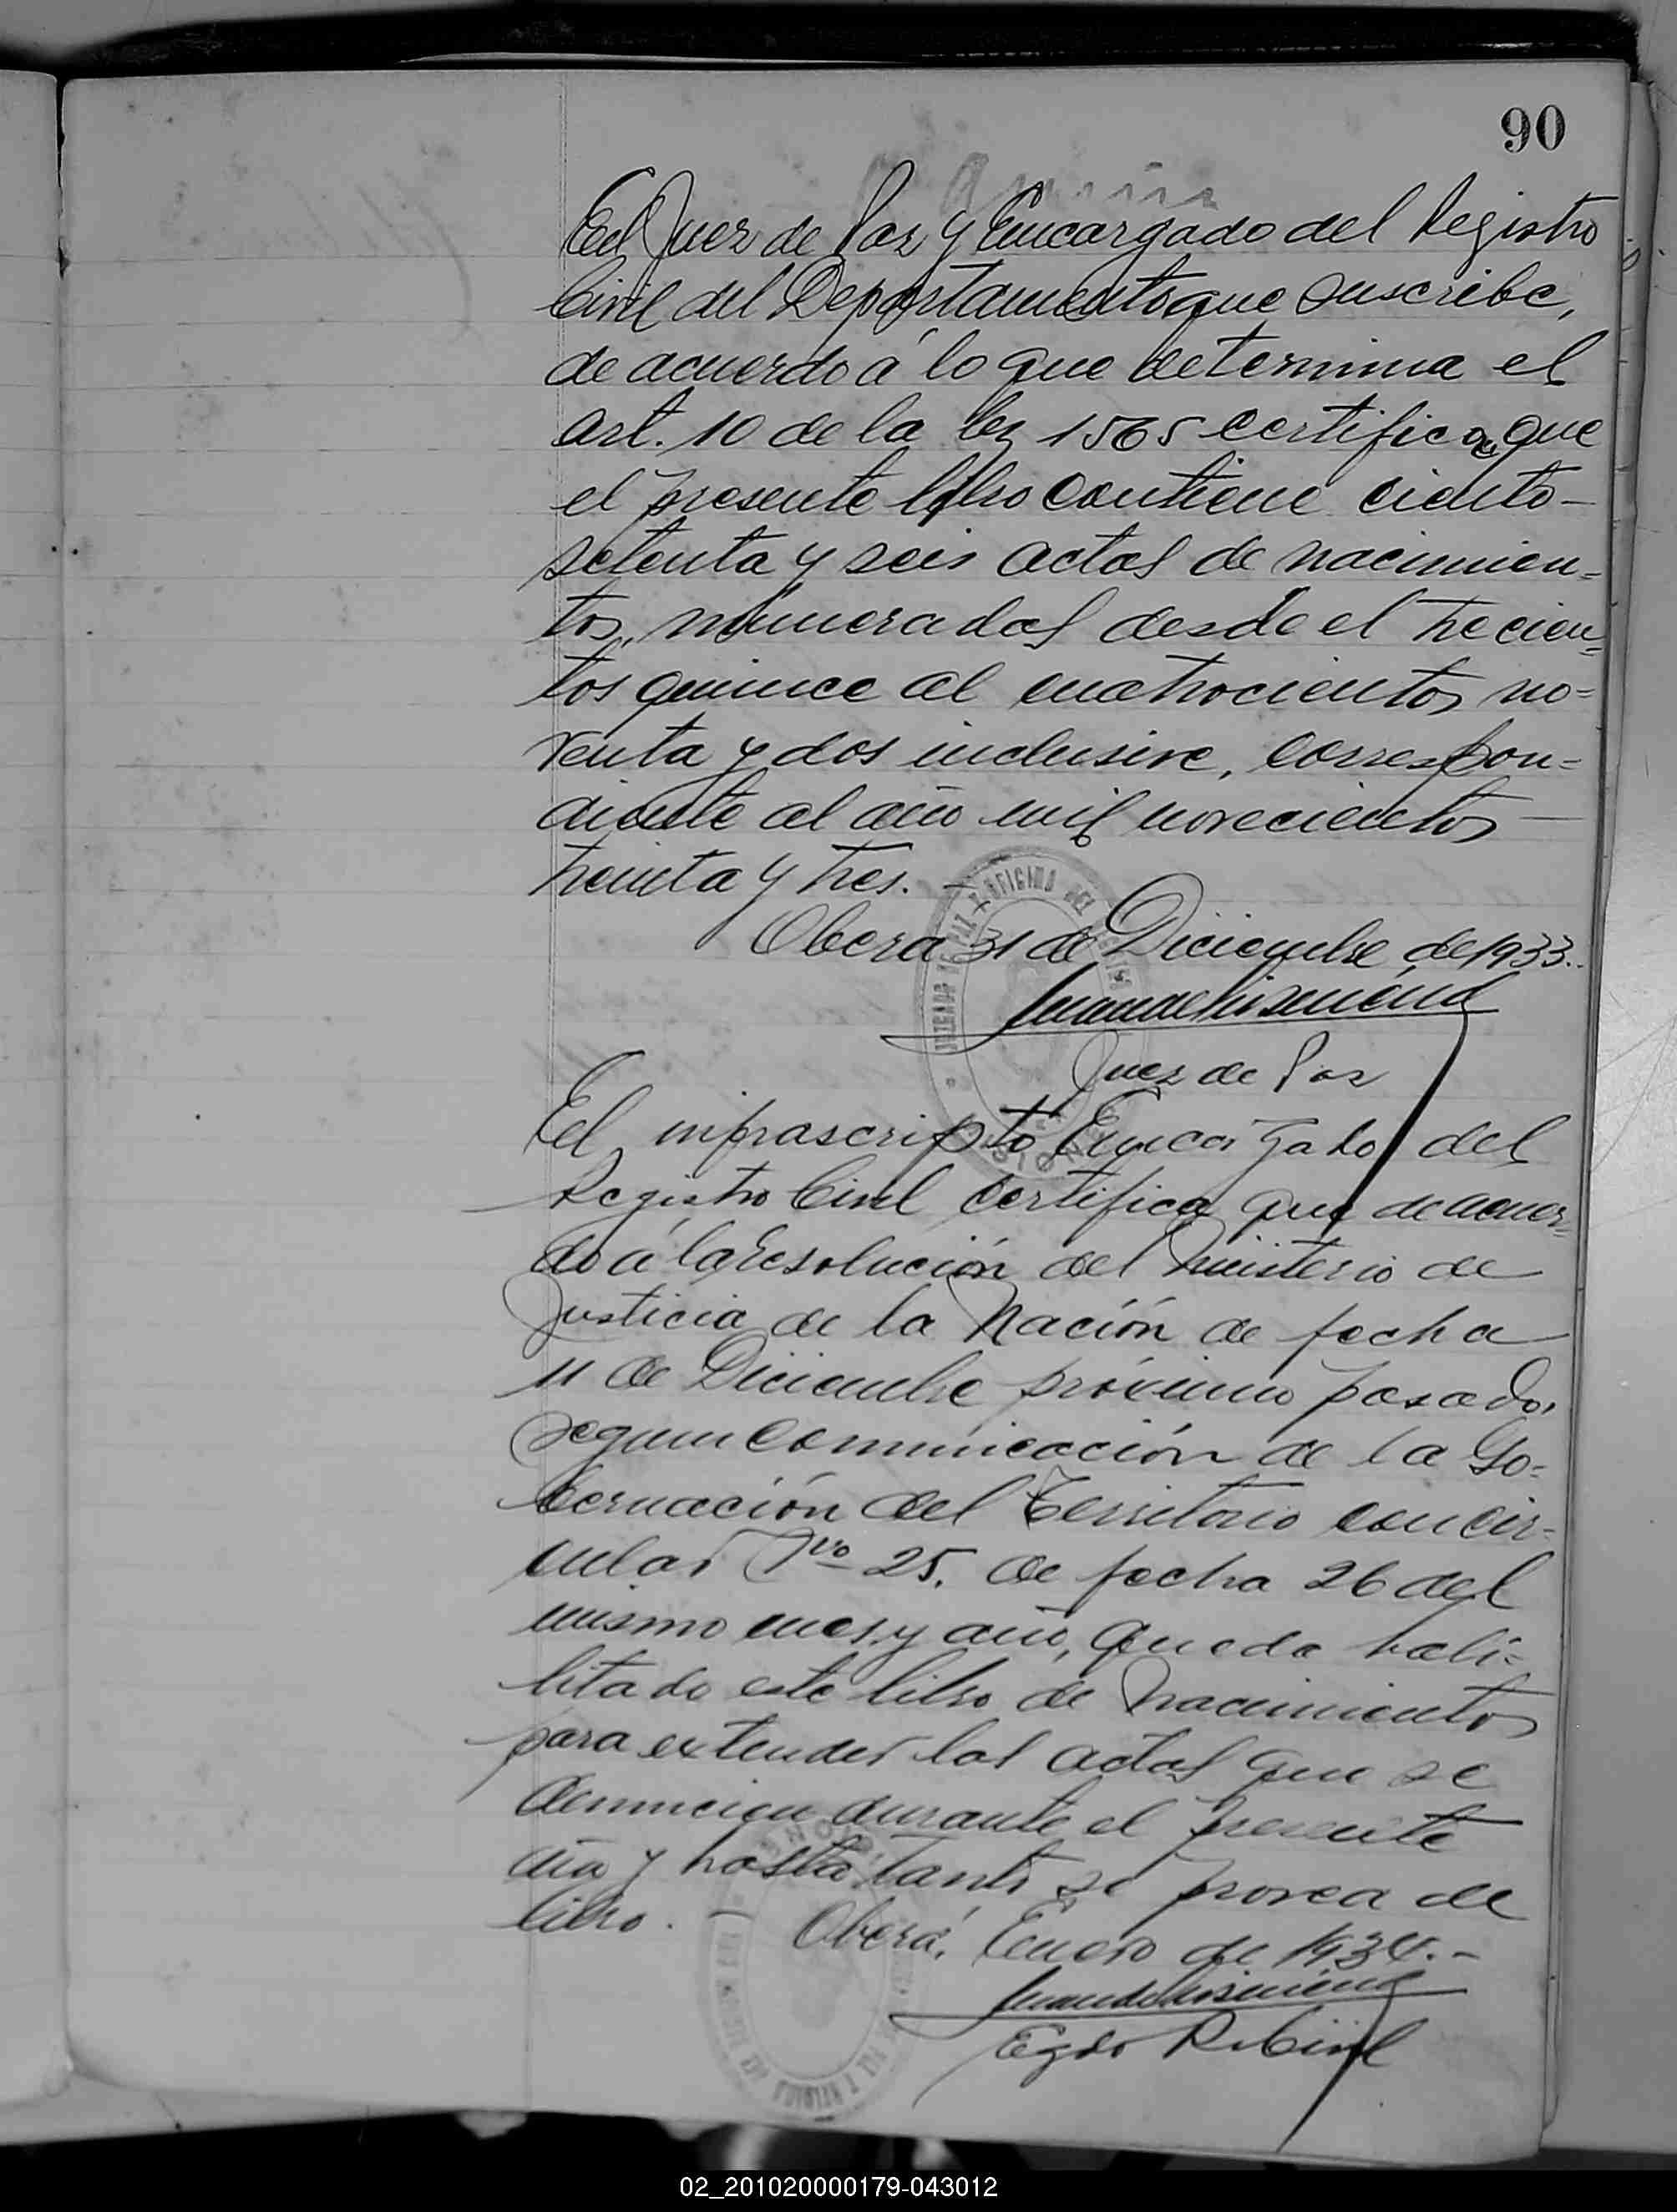 90
El Juez de Paz y Encargado del Registro
Civil del Departamento que suscribe,
de acuerdo á lo que determina el
art. 10 de la ley 1565 certifica que
el presente libro contiene ciento
setenta y seis actas de nacimien=
tos, numeradas desde el trecien=
tos quince al cuatrocientos no=
venta y dos inclusive, correspon=
diente al año mil novecientos
treinta y tres. —
Oberá 31 de Diciembre de 1933.
Juez de Paz
El infrascripto Encargado del
Registro Civil certifica que de acuer=
do á la resolución del Ministerio de
Justicia de la Nación de fecha
11 de Diciembre próximo pasado,
segun comunicación de la Go=
bernación del Territorio con cir=
cular Nro 25. de fecha 26 del
mismo mes y año, queda habi=
litado este libro de Nacimientos
para extender las actas que se
denuncien durante el presente
año y hasta tanto se provea de
libro. — Oberá, Enero de 1934. -
Egdo R. Civil
02_201020000179-043012